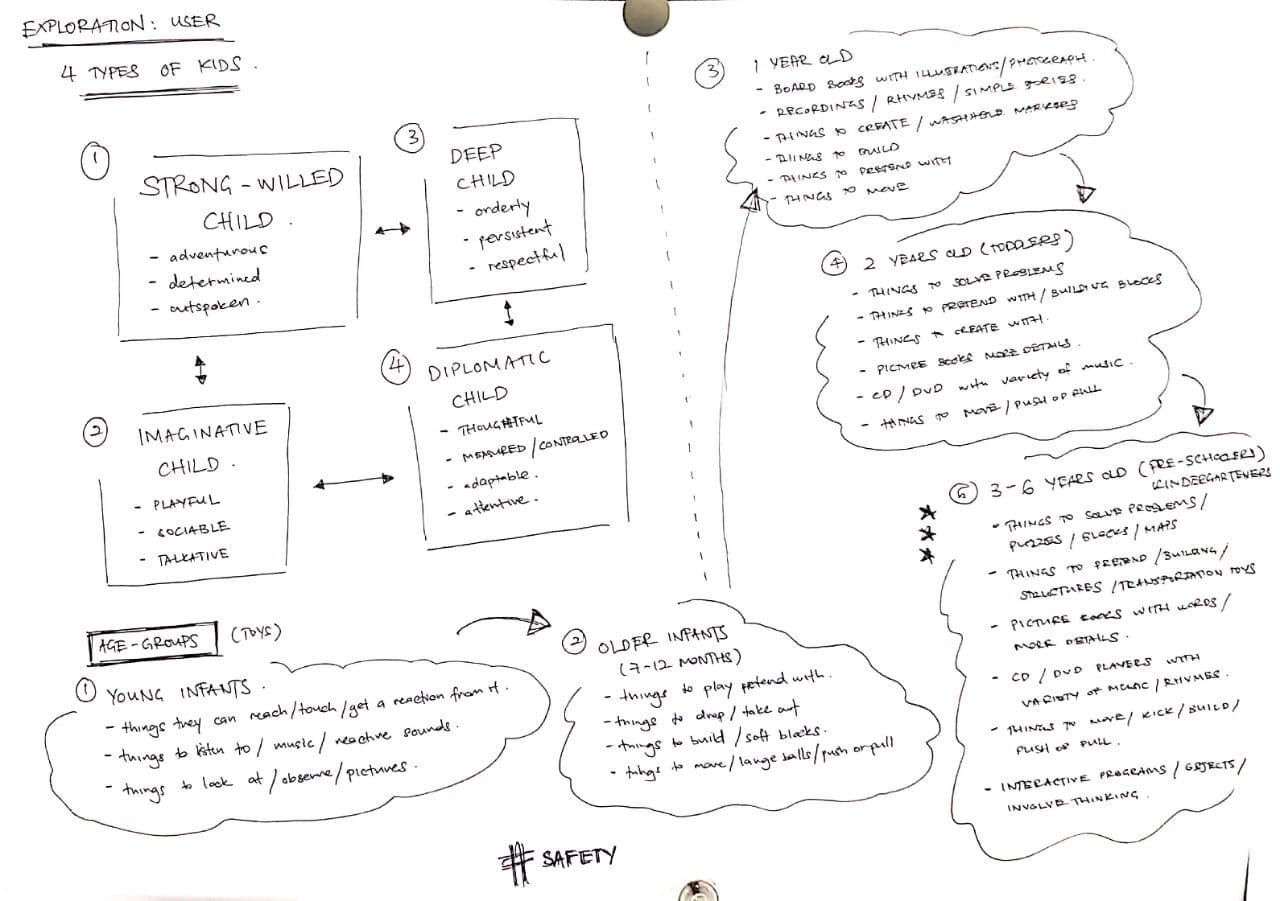 EXPLORATION: USER
4 TYPES OF KIDS.
1
STRONG-WILLED
CHILD.
- adventurous
- determined
- outspoken.
2
IMAGINATIVE
CHILD.
- PLAYFUL
- SOCIABLE
- TALKATIVE
3
DEEP
CHILD
- orderly
- persistent
- respectful
4
DIPLOMATIC
CHILD
- THOUGHTFUL
- MEASURED/CONTROLLED
- adaptable.
- attentive.
AGE-GROUPS (TOYS)
1 YOUNG INFANTS.
- things they can reach/touch/get a reaction from it.
- things to listen to/music/reactive sounds.
- things to look at/observe/pictures.
2 OLDER INFANTS
(7-12 MONTHS)
- things to play pretend with.
- things to drop/take out
- things to build/soft blocks.
- things to move/large balls/push or pull
3 1 YEAR OLD
- BOARD BOOKS WITH ILLUSTRATIONS/PHOTOGRAPH.
- RECORDINGS/RHYMES/SIMPLE STORIES.
- THINGS TO CREATE/WASHABLE MARKERS
- THINGS TO BUILD
- THINGS TO PRETEND WITH
- THINGS TO MOVE
4 2 YEARS OLD (TODDLERS)
- THINGS TO SOLVE PROBLEMS
- THINGS TO PRETEND WITH/BUILDING BLOCKS
- THINGS TO CREATE WITH.
- PICTURE BOOKS MORE DETAILS.
- CD/DVD with variety of music.
- THINGS TO MOVE/PUSH OR PULL
5 3-6 YEARS OLD (PRE-SCHOOLERS)
KINDERGARTENERS
- THINGS TO SOLVE PROBLEMS/
PUZZLES/BLOCKS/MAPS
- THINGS TO PRETEND/BUILDING/
STRUCTURES/TRANSPORTATION TOYS
- PICTURE BOOKS WITH WORDS/
MORE DETAILS.
- CD/DVD PLAYERS WITH
VARIETY OF MUSIC/RHYMES.
- THINGS TO MOVE/KICK/BUILD/
PUSH OR PULL.
- INTERACTIVE PROGRAMS/OBJECTS/
INVOLVE THINKING.
# SAFETY